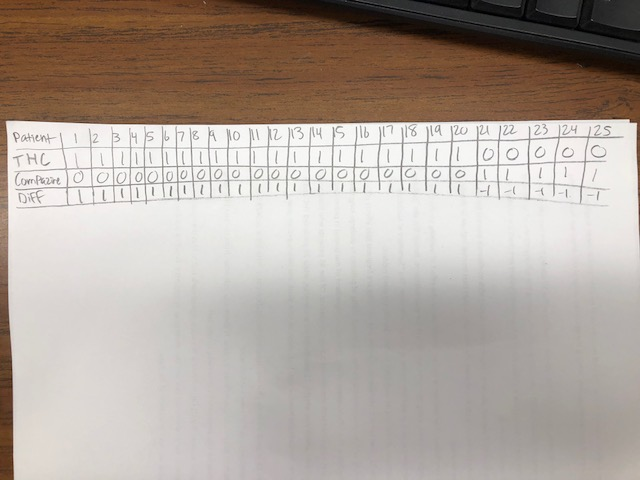 Patient 1 2 3 4 5 6 7 8 9 10 11 12 13 14 15 16 17 18 19 20 21 22 23 24 25
THC 1 1 1 1 1 1 1 1 1 1 1 1 1 1 1 1 1 1 1 1 0 0 0 0 0
Compazine 0 0 0 0 0 0 0 0 0 0 0 0 0 0 0 0 0 0 0 0 1 1 1 1 1
Diff 1 1 1 1 1 1 1 1 1 1 1 1 1 1 1 1 1 1 1 1 -1 -1 -1 -1 -1